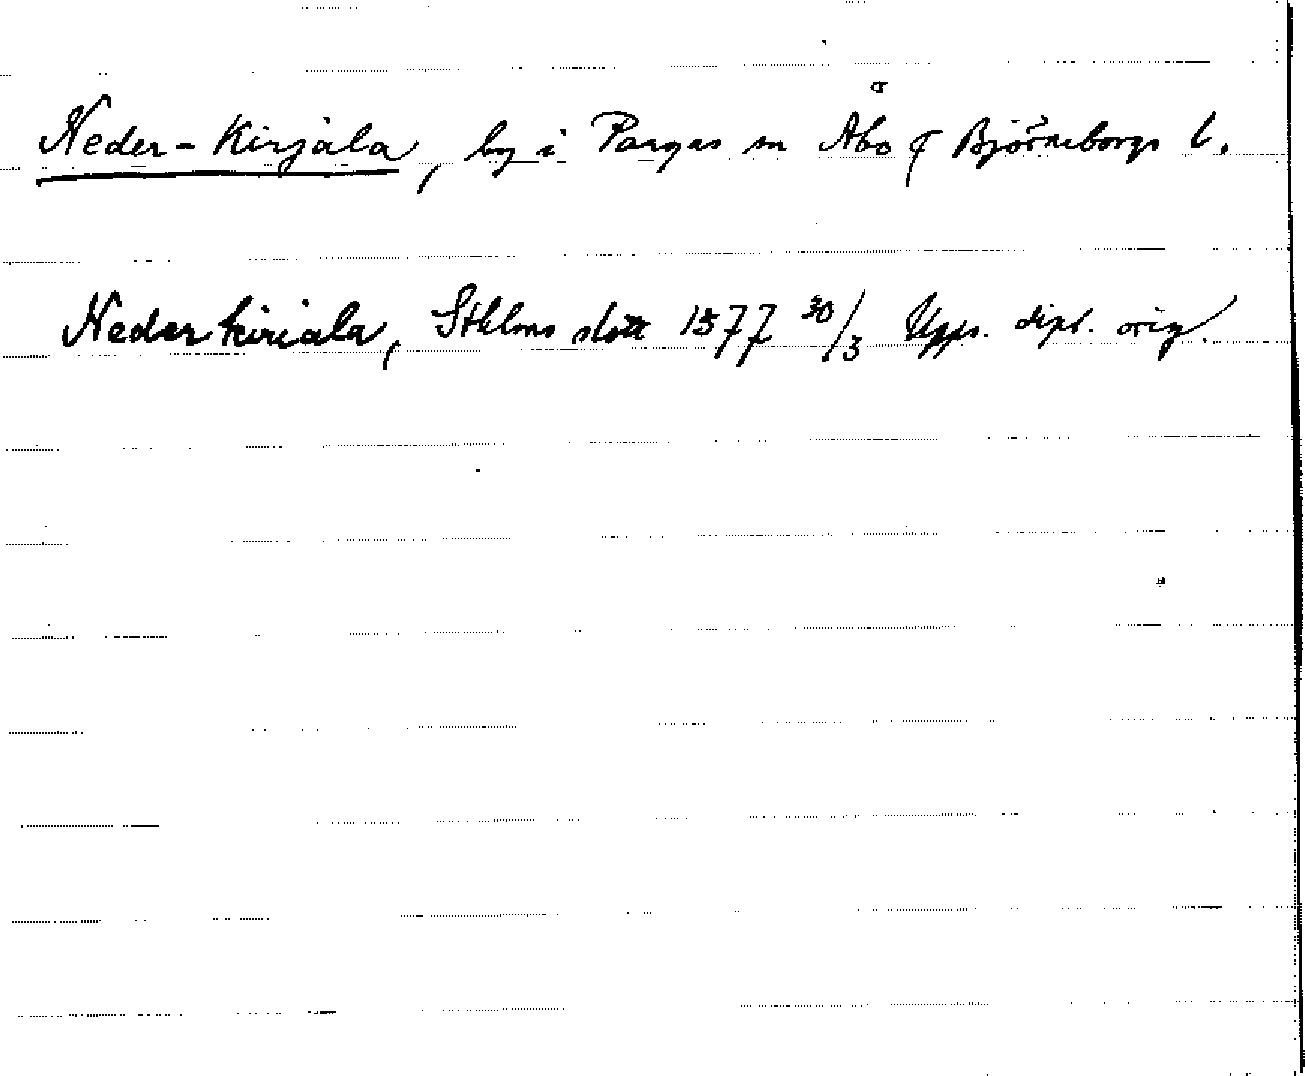 Neder-Kirjala, by i Pargas sn Åbo o Björneborgs l.
Nederkiriala, Sthlms slott 1577 30/3 Upps. dipl. orig.